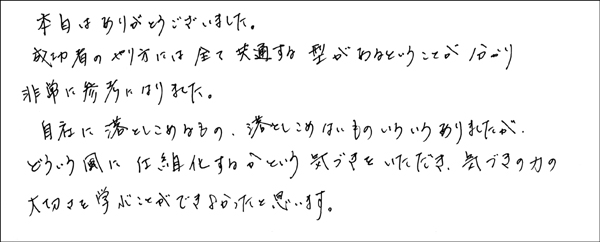 本日はありがとうございました。
成功者のやり方には全て共通する型があるということが分かり
非常に参考になりました。
自社に落としこめるもの、落としこめないものいろいろありましたが、
どういう風に仕組化するかという気づきをいただき、気づきの力の
大切さを学ぶことができよかったと思います。